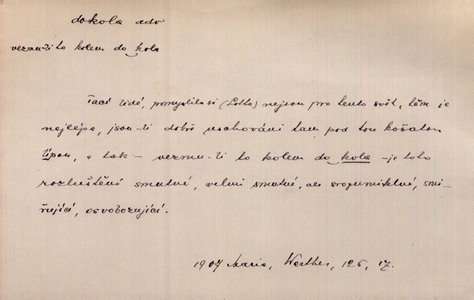 dokola ado
vezmu-li to kolem do kola
Tací lidé, pomyslila si (Lotta) nejsou pro tento svět, těm je
nejlépe, jsou-li dobře uschováni tam pod tou košatou
lípou, a tak – vezmu-li to kolem do kola – je toto
rozluštění smutné, velmi smutné, ale srozumitelné, smi-
řující, osvobozující.
1907 Maria, Werther, 126, 17.